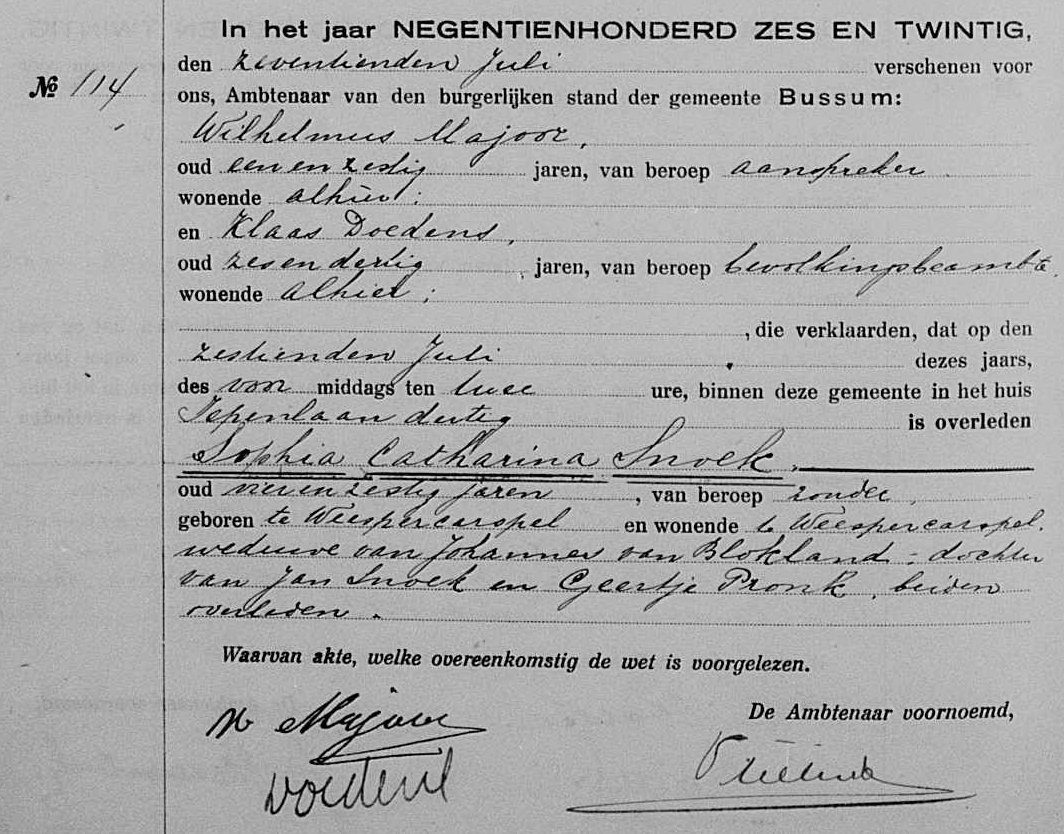 In het jaar NEGENTIENHONDERD ZES EN TWINTIG,
den zeventienden Juli verschenen voor
No 114
ons, Ambtenaar van den burgerlijken stand der gemeente Bussum:
Wilhelmus Majoor,
oud eenenzestig jaren, van beroep aanspreker
wonende alhier;
en Klaas Doedens,
oud zesendertig, jaren, van beroep bevolkingsbeambte
wonende alhier;
, die verklaarden, dat op den
zestienden Juli dezes jaars,
des voor middags ten twee ure, binnen deze gemeente in het huis
Iepenlaan dertig is overleden
Sophia Catharina Snoek,
oud vierenzestig jaren, van beroep zonder,
geboren te Weespercarspel en wonende te Weespercarspel,
weduwe van Johannes van Blokland; dochter
van Jan Snoek en Geertje Pronk, beiden
overleden.
Waarvan akte, welke overeenkomstig de wet is voorgelezen.
De Ambtenaar voornoemd,
W Majoor
Doedens